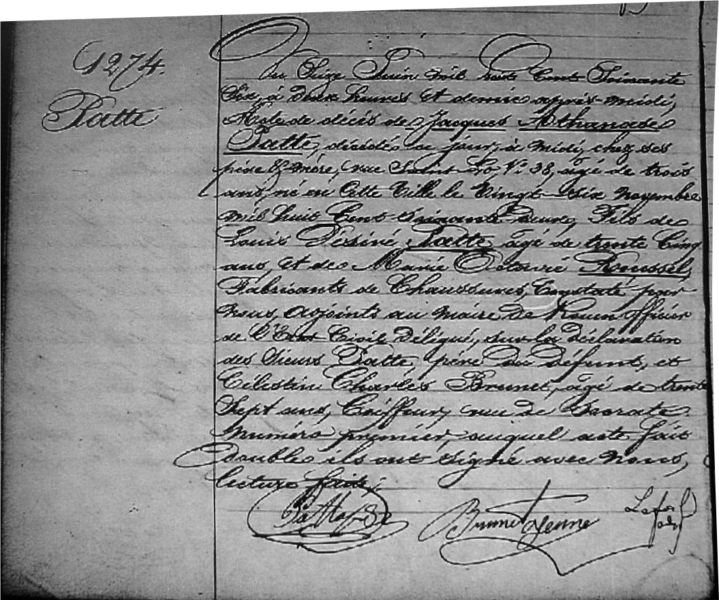 1274.
Patte
Du Seize Juin mil huit Cent Soixante
Six, à deux heures et demie après-midi,
Acte de décès de Jacques Athanase
Patte, décédé ce jour, à midi, chez ses
père & mère, rue Saint-Lô, N° 38, âgé de trois
ans, né en Cette Ville le Vingt-Six novembre
mil huit Cent Soixante deux, Fils de
Louis Désiré Patte, âgé de trente Cinq
ans, et de Marie Octavie Roussel,
Fabricants de Chaussures, Constaté par
nous, adjoint au maire de Rouen officier
de l'Etat Civil délégué, sur la déclaration
des Sieurs Patté, père du défunt, et
Célestin Charles Brunet, âgé de trente
Sept ans, Coiffeur, rue de Socrate
Numéro premier, auquel acte fait
double ils ont Signé avec Nous,
lecture faite.
Patte Brunet Jeune